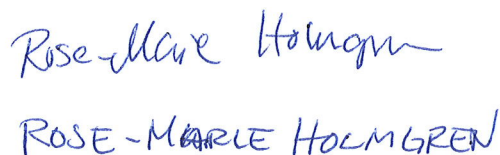 Rose-Marie Holmgren
ROSE-MARIE HOLMGREN